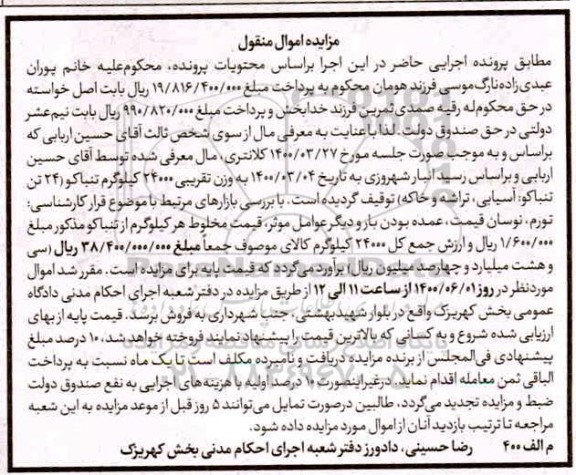 مزایده اموال منقول
مطابق پرونده اجرایی حاضر در این اجرا براساس محتویات پرونده، محکوم‌علیه خانم پوران
عبدی‌زاده‌نارگ‌موسی فرزند هومان محکوم به پرداخت مبلغ ۱۹/۸۱۶/۴۰۰/۰۰۰ ریال بابت اصل خواسته
در حق محکوم‌له رقیه صمدی تبرین فرزند خدابخش و پرداخت مبلغ ۹۹۰/۸۲۰/۰۰۰ ریال بابت نیم‌عشر
دولتی در حق صندوق دولت. لذا با عنایت به معرفی مال از سوی شخص ثالث آقای حسین اربابی که
براساس و به موجب صورت جلسه مورخ ۱۴۰۰/۰۳/۲۷ کلانتری، مال معرفی شده توسط آقای حسین
اربابی و براساس رسید انبار شهروزی به تاریخ ۱۴۰۰/۰۳/۰۴ به وزن تقریبی ۲۴۰۰۰ کیلوگرم تنباکو (۲۴ تن
تنباکو: آسیابی، تراشه و خاکه) توقیف گردیده است. با بررسی بازارهای مرتبط با موضوع قرار کارشناسی:
تورم، نوسان قیمت، عمده بودن بار و دیگر عوامل موثر، قیمت مخلوط هر کیلوگرم از تنباکو مذکور مبلغ
۱/۶۰۰/۰۰۰ ریال و ارزش جمع کل ۲۴۰۰۰ کیلوگرم کالای موصوف جمعاً مبلغ ۳۸/۴۰۰/۰۰۰/۰۰۰ ریال (سی
و هشت میلیارد و چهارصد میلیون ریال) برآورد می‌گردد که قیمت پایه برای مزایده است. مقرر شد اموال
موردنظر در روز ۱۴۰۰/۰۶/۰۱ از ساعت ۱۱ الی ۱۲ از طریق مزایده در دفتر شعبه اجرای احکام مدنی دادگاه
عمومی بخش کهریزک واقع در بلوار شهید بهشتی، جنب شهرداری به فروش برسد. قیمت پایه از بهای
ارزیابی شده شروع و به کسانی که بالاترین قیمت را پیشنهاد نمایند فروخته خواهد شد. ۱۰ درصد مبلغ
پیشنهادی فی‌المجلس از برنده مزایده دریافت و نامبرده مکلف است تا یک ماه نسبت به پرداخت
الباقی ثمن معامله اقدام نماید. درغیراینصورت ۱۰ درصد اولیه با هزینه‌های اجرایی به نفع صندوق دولت
ضبط و مزایده تجدید می‌گردد، طالبین درصورت تمایل می‌توانند ۵ روز قبل از موعد مزایده به این شعبه
مراجعه تا ترتیب بازدید آنان از اموال مورد مزایده داده شود.
م الف ۴۰۰ رضا حسینی، دادورز دفتر شعبه اجرای احکام مدنی بخش کهریزک
۰۲۱-۸۸۳۴۹۶۷۰-۵